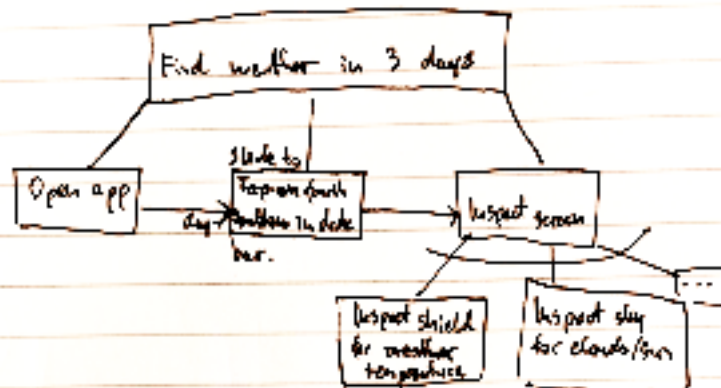 Find weather in 3 days
Open app
Slide to
Tap on fourth
button in date
day
bar.
Inspect screen
Inspect shield
for weather
temperature
Inspect sky
for clouds/sun
...